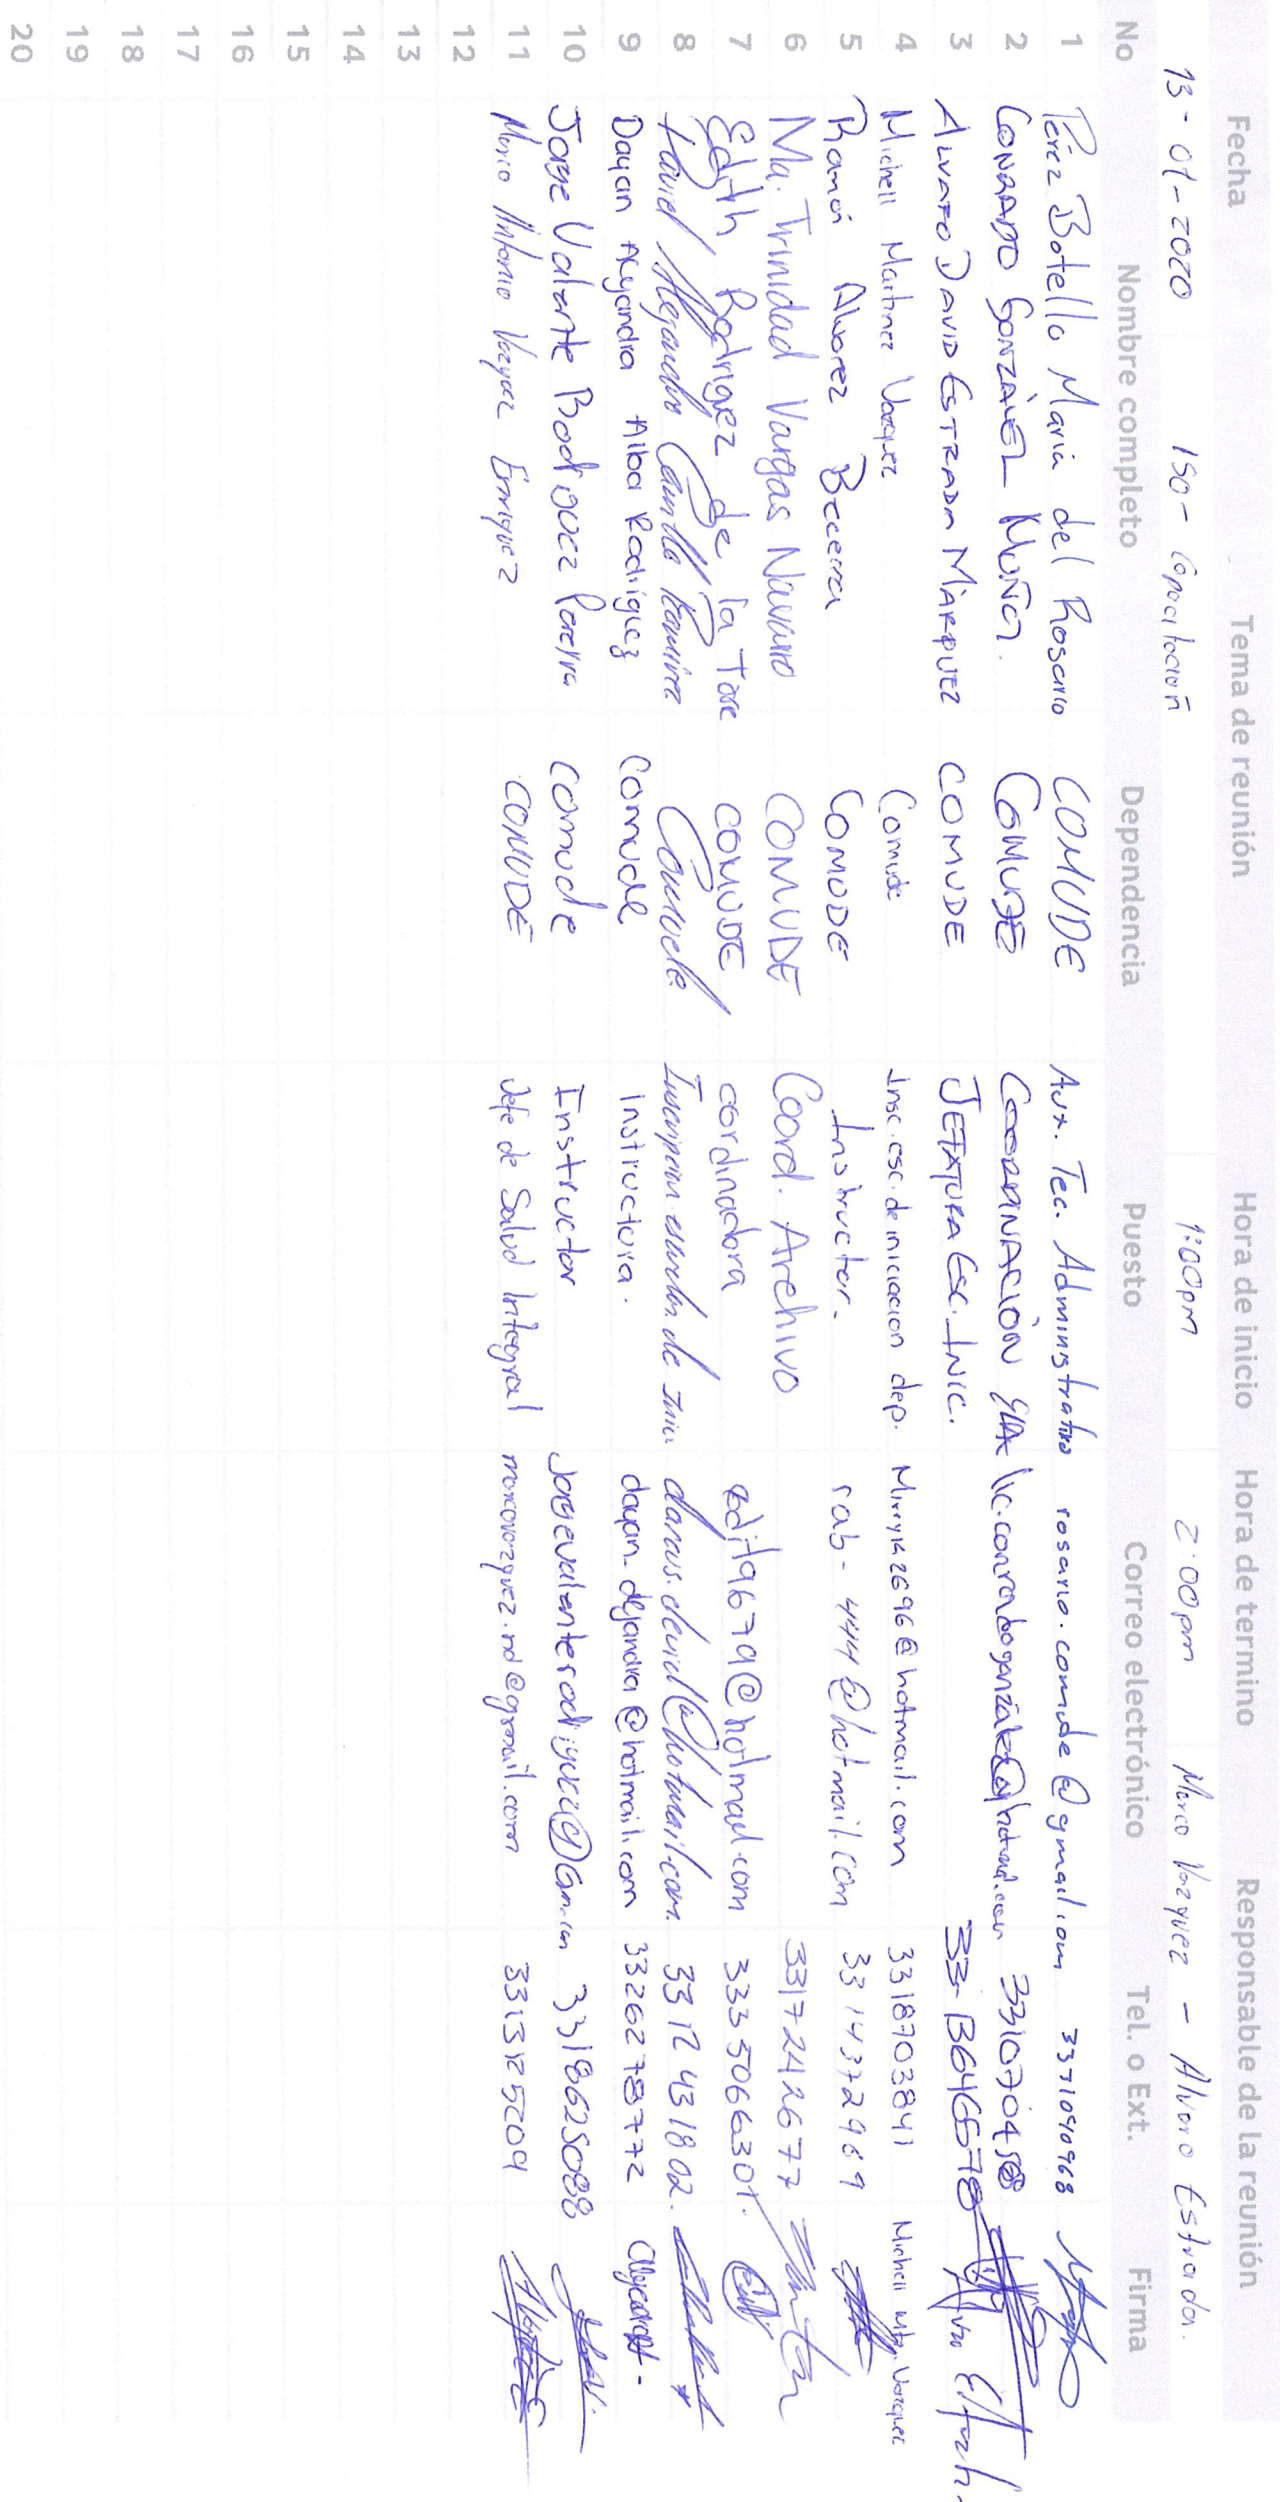 Fecha Tema de reunión Hora de inicio Hora de termino Responsable de la reunión
13-01-2020 ISO - Capacitación 1:00pm 2:00pm Marco Vazquez - Alvaro Estrada.
No Nombre completo Dependencia Puesto Correo electrónico Tel. o Ext. Firma
1 Pérez Botello Maria del Rosario COMUDE Aux. Tec. Administrativo rosario.comude@gmail.com 3371040968
2 CONRADO GONZÁLEZ MUÑOZ. COMUDE COORDINACIÓN lic.conradogonzalez@hotmail.com
3 ALVARO DAVID ESTRADA MARQUEZ COMUDE JEFATURA ESC. INIC.
4 Michell Martinez Vazquez Comude Insc. esc. de iniciacion dep. 3318703841 Michell Mtz. Vazquez
5 Ramón Alvarez Becerra COMUDE Instructor. rab-444@hotmail.com 3314372969
6 Ma. Trinidad Vargas Navarro COMUDE Coord. Archivo 3317242677
7 Edith Rodriguez de la Torre COMUDE cordinadora 3335066301.
8 David Alejandro Carrillo Ramirez Comude 3312431802.
9 Dayan Alejandra Alba Rodriguez Comude Instructora. dayan-alejandra@hotmail.com 3326278772
10 Jorge Valente Rodriguez Comude Instructor 3318625088
11 Marco Antonio Vazquez Enriquez COMUDE Jefe de Salud Integral marcovazquez.nd@gmail.com 3313125209
12
13
14
15
16
17
18
19
20